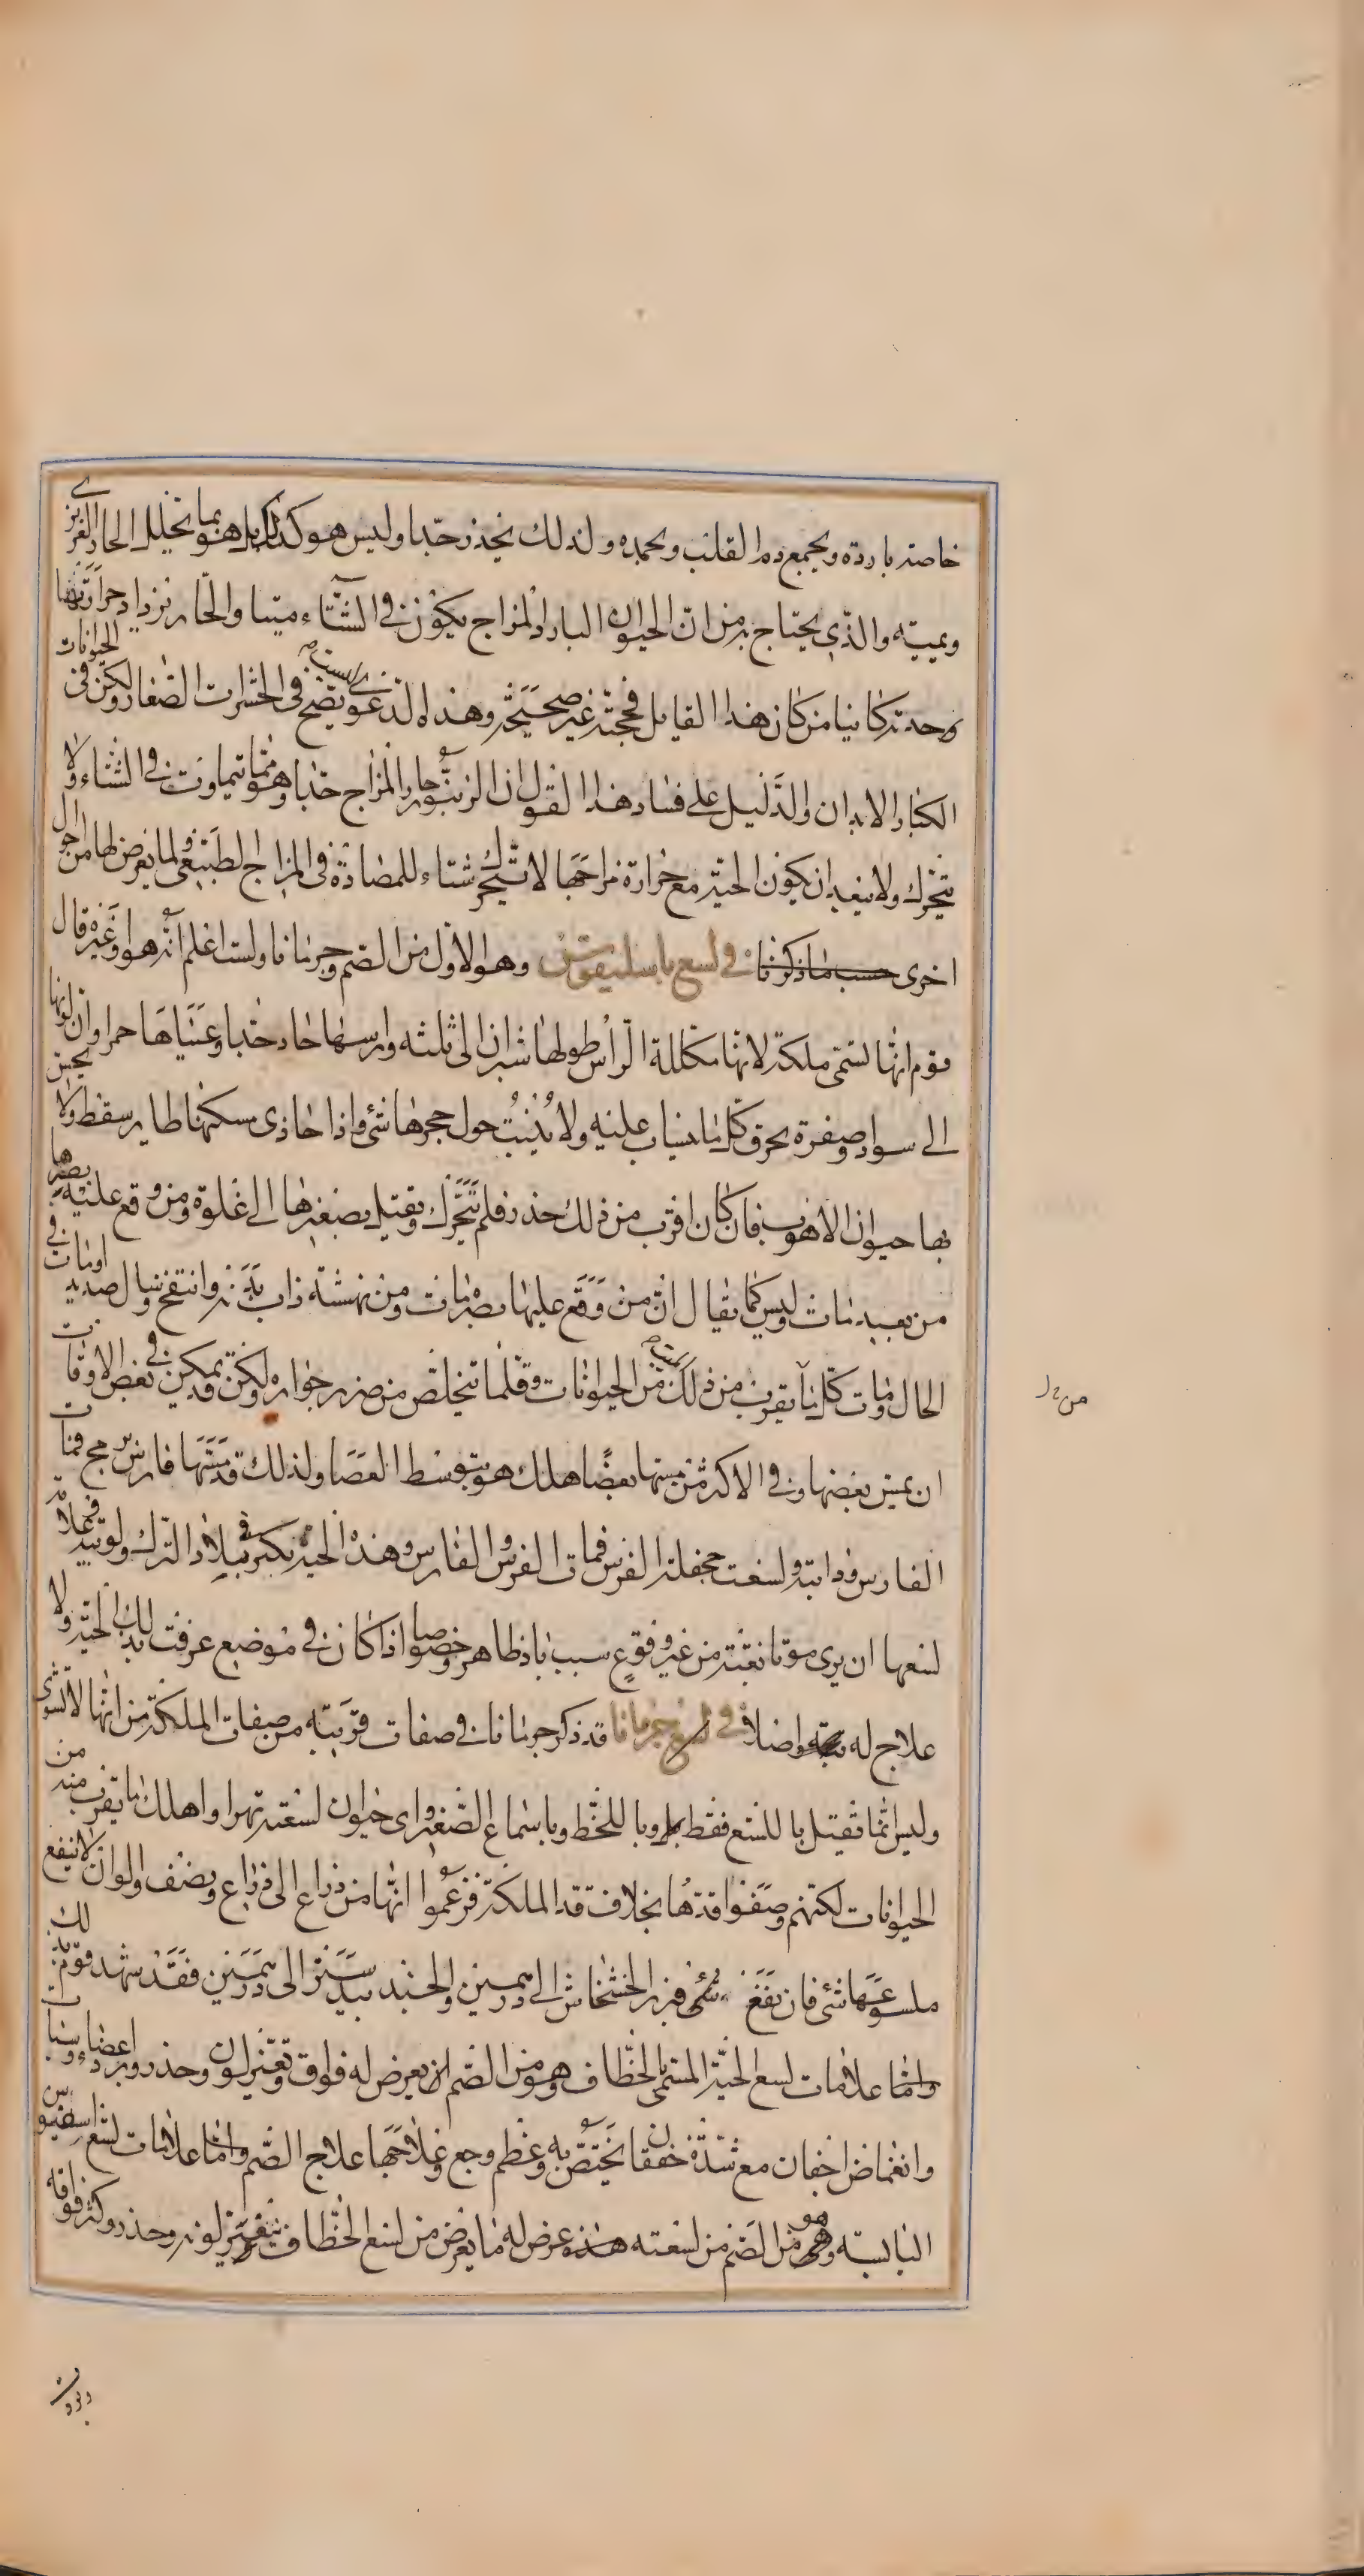 خاصته باردة ويجمع دم القلب ويجمده ولذلك يخدر جدا وليس هو كذلك بل هو بما تحليل الحار الغريزي
ويميته والذي يحتاج به من ان الحيوان البارد المزاج يكون في الشتاء ميتا والحار يزداد حرارته
وحدته كاينا من كان هذا القايل فحجته غير صحيحة وهذه الدعوى ليست تصح في الحشرات الصغار ولكن في الحيوانات
الكبار الابدان والدليل على فساد هذا القول ان الزنبور حار المزاج جدا وهو مما يتماوت في الشتاء ولا
يتحرك ولا يبعد ان يكون الحية مع حرارة مزاجها لا تتحرك شتاء للمضادة في المزاج الطبيعي ولما يعرض لها من احوال
اخرى حسب ما ذكرنا في لسع باسليقوس وهو الاول من الصم وجرمانا ولست اعلم انه هو او غيره قال
قوم انها تسمى ملكة لانها مكللة الراس طولها شبران الى ثلثه وراسها حاد جدا وعيناها حمراوان لونها
الى سواد وصفرة يحرق كل ما ينساب عليه ولا ينبت حول جحرها شئ واذا حاذى مسكنها طاير سقط ولا يحس
بها حيوان الا هرب فان كان اقرب من ذلك خدر فلم يتحرك ويقتل بصفيرها الى غلوة ومن وقع عليه بصرها
من بعيد مات وليس كما يقال ان من وقع عليها بصره مات ومن نهشته ذاب بدنه وانتفخ وسال صديد او مات في
الحال ومات كل ما يقرب من ذلك الميت من الحيوانات وقلما يتخلص من ضرر جواره ولكن قد يمكن في بعض الاوقات
ان يمس بعضها وفي الاكثر من مسها بعضا هلك هو بتوسط العصا ولذلك قد مسها فارس برمح فمات
الفارس ودابته ولسعت جحفلة الفرس فمات الفرس والفارس وهذه الحية يكثر في بلاد الترك ولوبية فعلامة
لسعها ان يرى موتا بغتة من غير وقوع سبب باد ظاهر وخصوصا اذا كان في موضع عرفت بذلك الحية ولا
علاج له اصلا في لسع جرمانا قد ذكر جرمانا في صفات قريبة من صفات الملكة من انها لا تشوى
وليس انما تقتل باللسع فقط بل وباللحظ وباسماع الصفير واى حيوان لسعته تهرا واهلك ما يقرب منه من
الحيوانات لكنهم وصفوا قدها بخلاف قد الملكة فزعموا انها من ذراع الى ذراع ونصف والوان لا ينفع
ملسوعها شئ فان نفع شئ فبزر الخشخاش الى درهمين والجندبيدستر الى درهمين فقد شهد قوم بذلك
واما علامات لسع الحية المسمى بالخطاف وهو من الصم ان يعرض له فواق وتغير لون وخدر وبرد اعضاء وسبات
وانغماض اجفان مع شدة خفقان يختص به وعظم وجع وعلاجها علاج الصم واما علامات لسع اسقيوس
اليابسة وهو من الصم من لسعته هذه عرض له ما يعرض من لسع الخطاف بتغير لونه وخدر وكثر فواقه